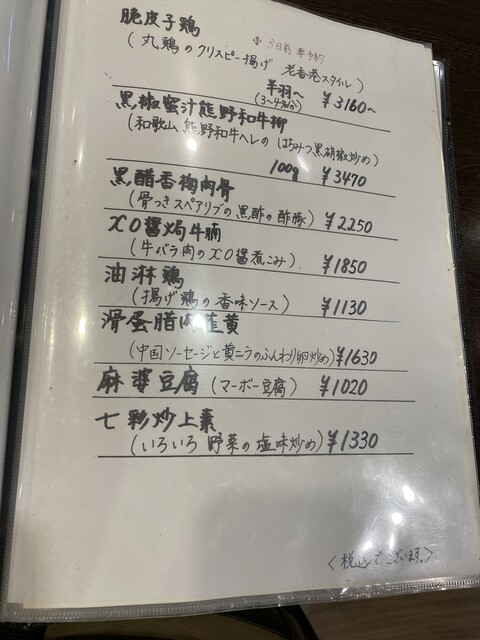 脆皮子鶏
※ 3日前 要予約
(丸鶏のクリスピー揚げ 老香港スタイル)
半羽〜 ¥3160〜
(3〜4名分)
黒椒蜜汁熊野和牛柳
(和歌山 熊野和牛ヘレの はちみつ黒胡椒炒め)
100g ¥3470
黒醋香梅肉骨
(骨つきスペアリブの黒酢の酢豚) ¥2250
XO醤焗牛腩
(牛バラ肉のXO醤煮こみ) ¥1850
油淋鶏
(揚げ鶏の香味ソース) ¥1130
滑蛋腊肉韮黄
(中国ソーセージと黄ニラのふんわり卵炒め) ¥1630
麻婆豆腐 (マーボー豆腐) ¥1020
七彩炒上素
(いろいろ野菜の塩味炒め) ¥1330
〈税込でございます。〉